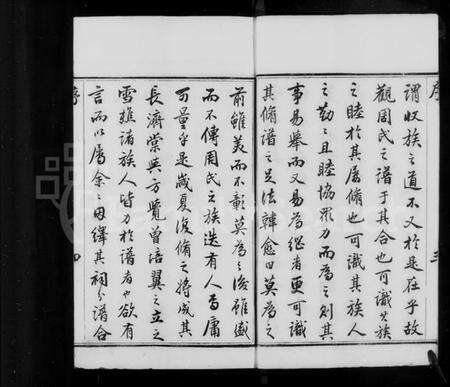 序 三
謂收族之道不又於是在乎故
觀周氏之譜于其合也可識其族
之睦於其屢脩也可識其族人
之勤之且睦協衆力而為之則其
事易舉而又易為繼者更可識
其脩譜之足法韓愈曰莫為之
前雖美而不彰莫為之後雖盛
而不傳周氏之族迭有人焉庸
可量乎是歲夏復脩之將成其
長濟堂與方覽曾培翼之立之
雪雄諸族人皆力於譜者也欲有
言而以屬余之因繹其祠分譜合
序 四